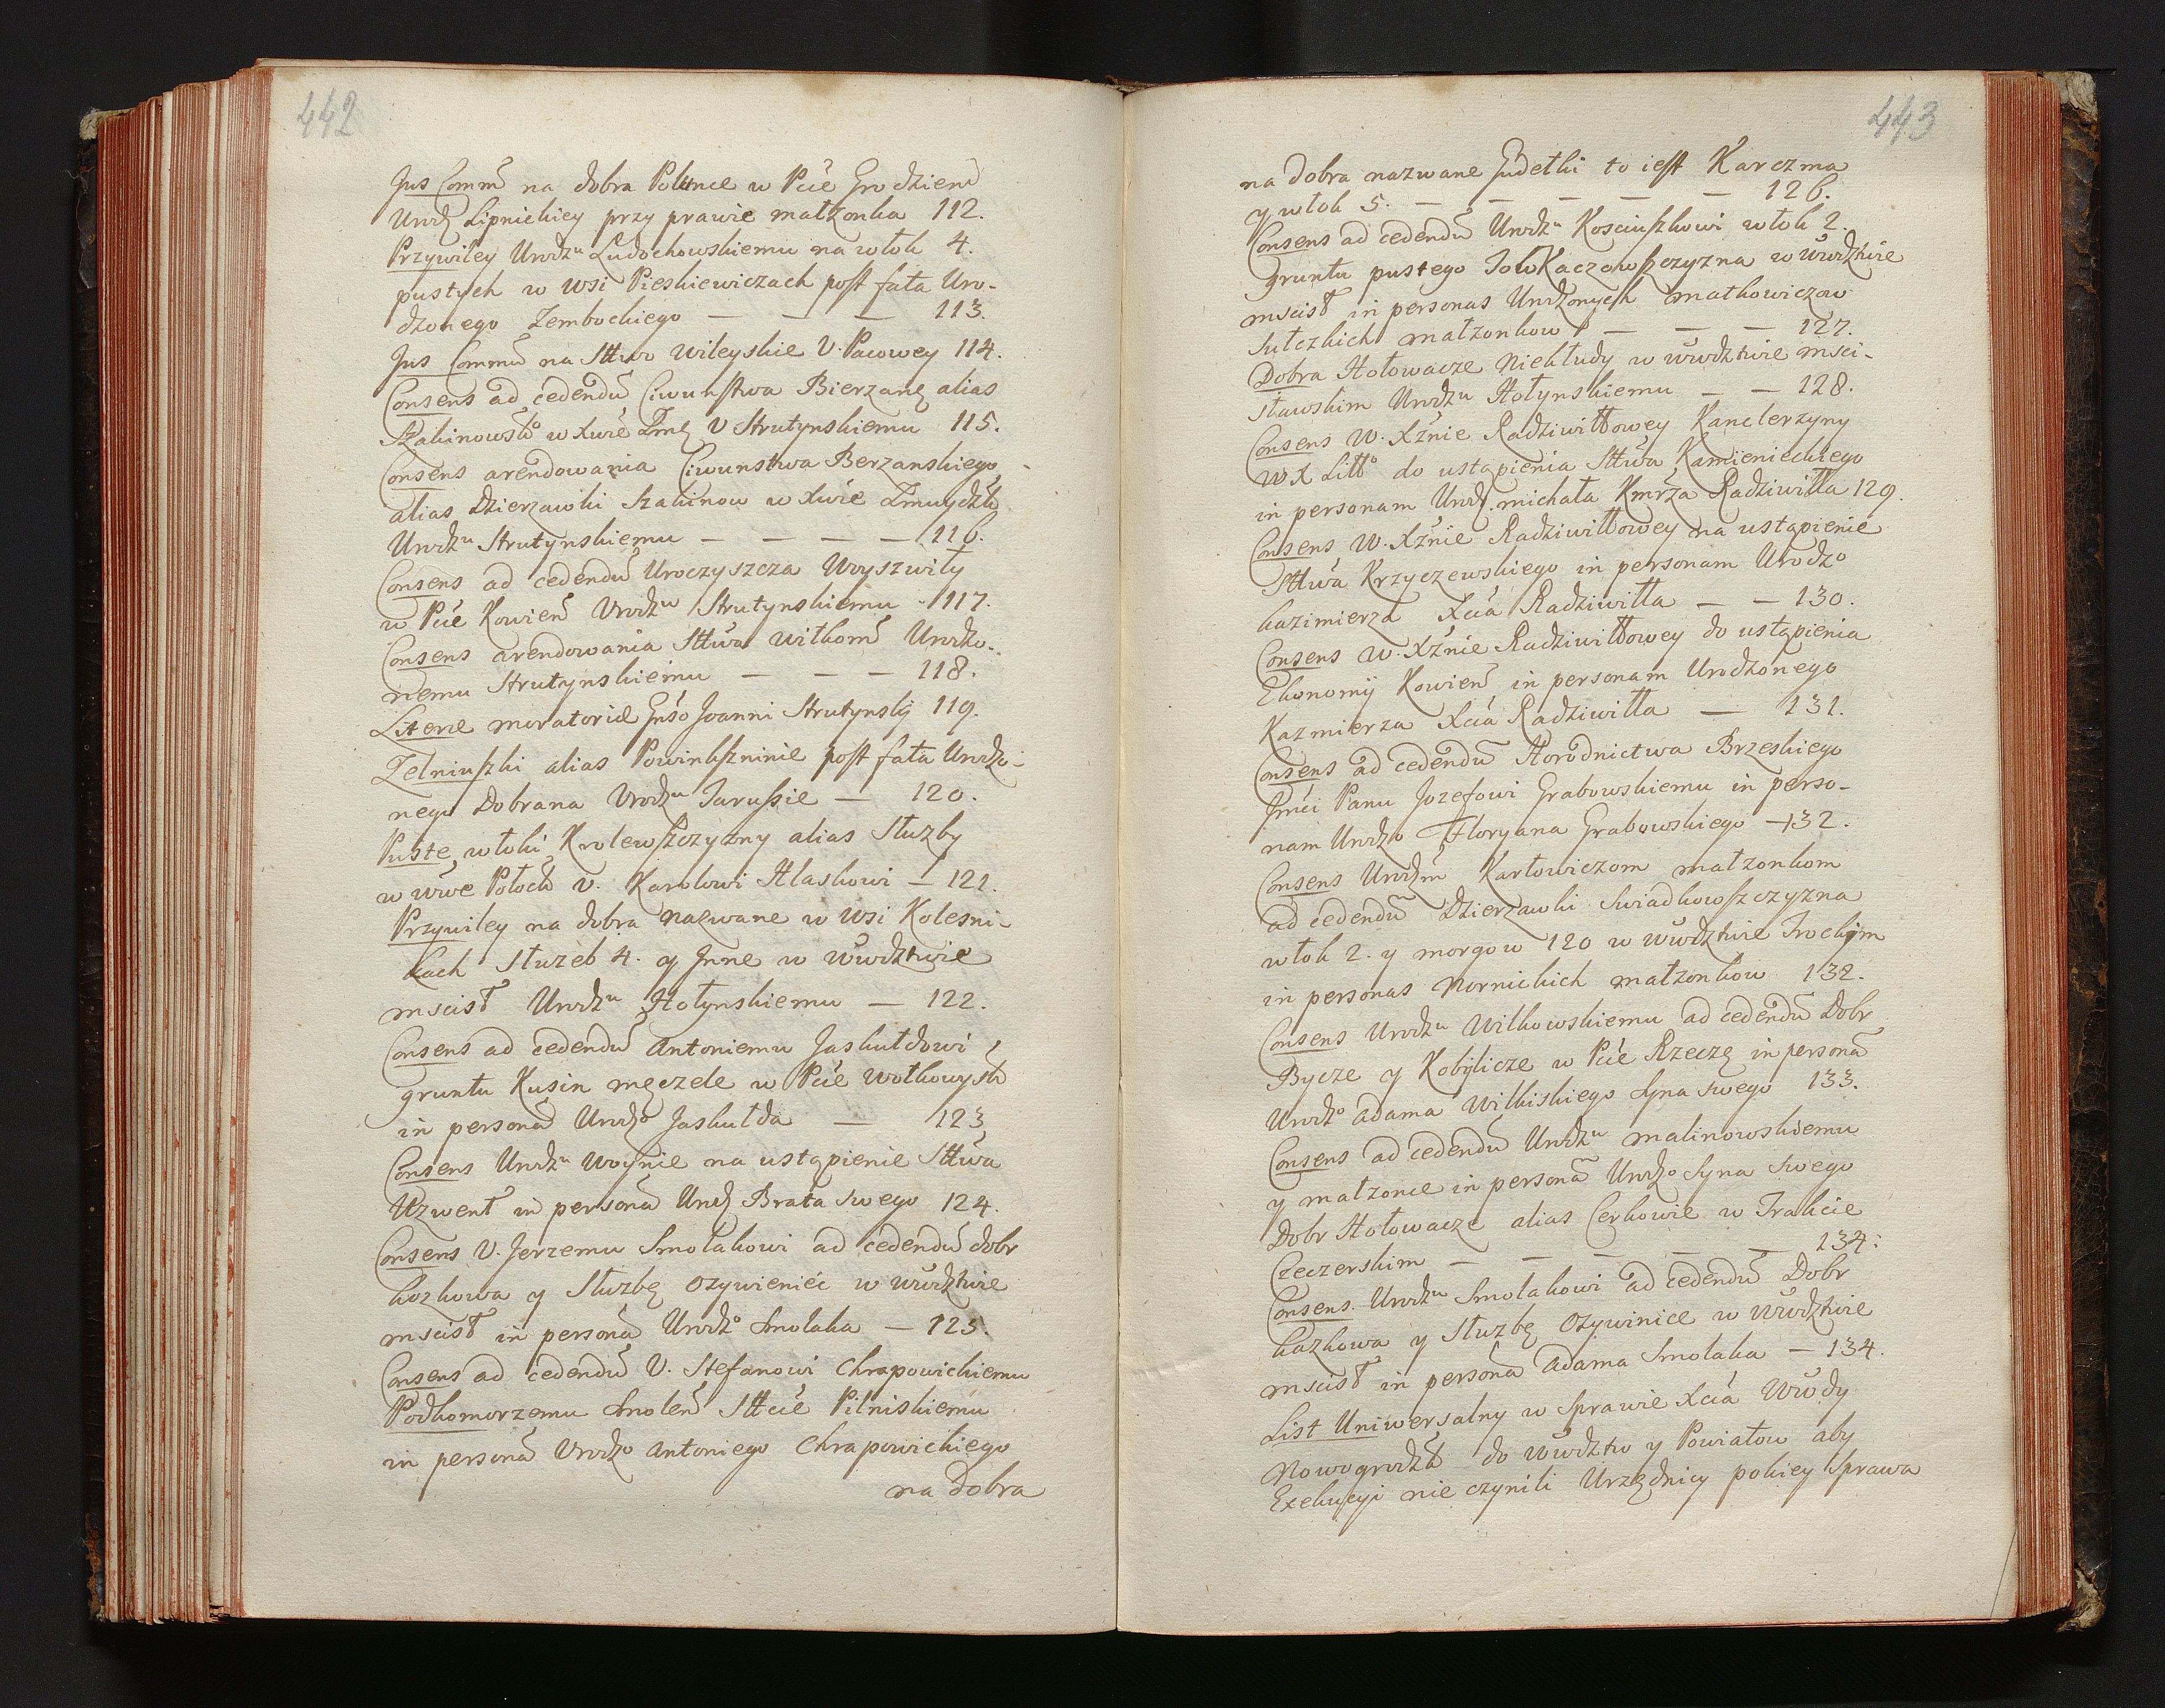 442
Jus Comm̃ na dobra Polunce w Pcie Grodzieñ
Urodz Lipnickiey przy prawie małżonka 112.
Przywiley Urodzu Ludochowskiemu na włok 4.
pustych w wsi Pieskiewiczach post fata Uro-
dzonego Zembockiego — — — 113.
Jus Commũ na Sttwo Wileyskie U. Pacowey 114.
Consens ad cedendũ Ciwunstwa Bierzanz alias
Szakinowsko w Xwie Zmz U Strutynskiemu 115.
Consens arendowania Ciwunstwa Berzanskiego
alias Dzierzawki Szakinow w Xwie Zmuydzk
Urodzu Strutynskiemu — — — — 116.
Consens ad cedendũ Uroczyszcza Woyszwiły
w Pcie Kowieñ Urodzu Strutynskiemu 117.
Consens arendowania Sttwa Wilkom̃ Urodzo-
nemu Strutynskiemu — — — 118.
Literæ moratoriæ Gnso Joanni Strutynsky 119.
Zelniuszki alias Powinkszninie post fata Urodzo-
nego Dobrana Urodzu Jarussie — 120.
Puste włoki Krolewszczyzny alias Służby
w Wwe Połock U. Karolowi Hlaskowi — 121.
Przywiley na dobra nazwane w wsi Kolesni-
kach Służeb 4. y Jnne w Wwdztwie
mscisł Urodzu Hołynskiemu — 122.
Consens ad cedendũ Antoniemu Jaskułdowi
gruntu Kusin męczele w Pcie Wołkowysk
in personã Urodzo Jaskułda — 123
Consens Urodzu Woynie na ustąpienie Sttwa
Uzwent in personã Urodz Brata swego 124.
Consens U. Jerzemu Smolakowi ad cedendũ dobr
Kozkowa y Służbę Ozywieniec w Wwdztwie
mscisł in personã Urodzo Smolaka — 125.
Consens ad cedendũ U. Stefanowi Chrapowickiemu
Podkomorzemu Smoleñ Sttcie Pilniskiemu
in personã Urodzo Antoniego Chrapowickiego
na Dobra
443
na Dobra nazwane Gudelki to iest Karczma
y włok 5. — — — — — 126.
Consens ad cedendũ Urodzu Kosciuszkowi włok 2.
gruntu pustego Jowkaczowszczyzna w Wwdztwie
mscisł in personas Urodzonych Matkowiczow
Sułczkich małzonkow — — — 127.
Dobra Hołowacze Niekłudy w Wwdztwie msci-
sławskim Urodzu Hołynskiemu — — 128.
Consens W. Xżnie Radziwiłłowey Kanclerzyny
W X Litto do ustąpienia Sttwa Kamienieckiego
in personam Urodz. Michała Kmrza Radziwiłła 129.
Consens W. Xżnie Radziwiłłowey na ustąpienie
Sttwa Krzyczewskiego in personam Urodzo
kazimierza Xcia Radziwiłła — — 130.
Consens W. Xżnie Radziwiłłowey do ustąpienia
Ekonomij Kowieñ in personam Urodzonego
Kazmierza Xcia Radziwiłła — 131.
Consens ad cedendũ Horodnictwa Brzeskiego
Jmci Panu Jozefowi Grabowskiemu in perso-
nam Urodzo Floryana Grabowskiego — 132.
Consens Urodzm Karłowiczom małzonkom
ad cedendũ Dzierzawki Swiadkowszczyzna
włok 2. y morgow 120 w Wwdztwie Trockim
in personas Nornickich małzonkow 132.
Consens Urodzu Wilkowskiemu ad cedendũ Dobr
Bycze y Kobylicze w Pcie Rzeczę in personã
Urodzo Adama Wilkiskiego Syna swego 133.
Consens ad cedendũ Urodzu Malinowskiemu
y małzonce in personã Urodzo Syna swego
Dobr Hołowacze alias Cerkowie w Trakcie
Czeczerskim — — — — — 134.
Consens. Urodzu Smolakowi ad cedendũ Dobr
Kazkowa y Służbę Ozywinice w Wwdztwie
mscisł in personã Adama Smolaka — 134.
List Uniwersalny w Sprawie Xcia Wwody
Nowogrodzk do Wwdztw y Powiatow aby
Exekucyi nie czynili Urzędnicy pokiey Sprawa